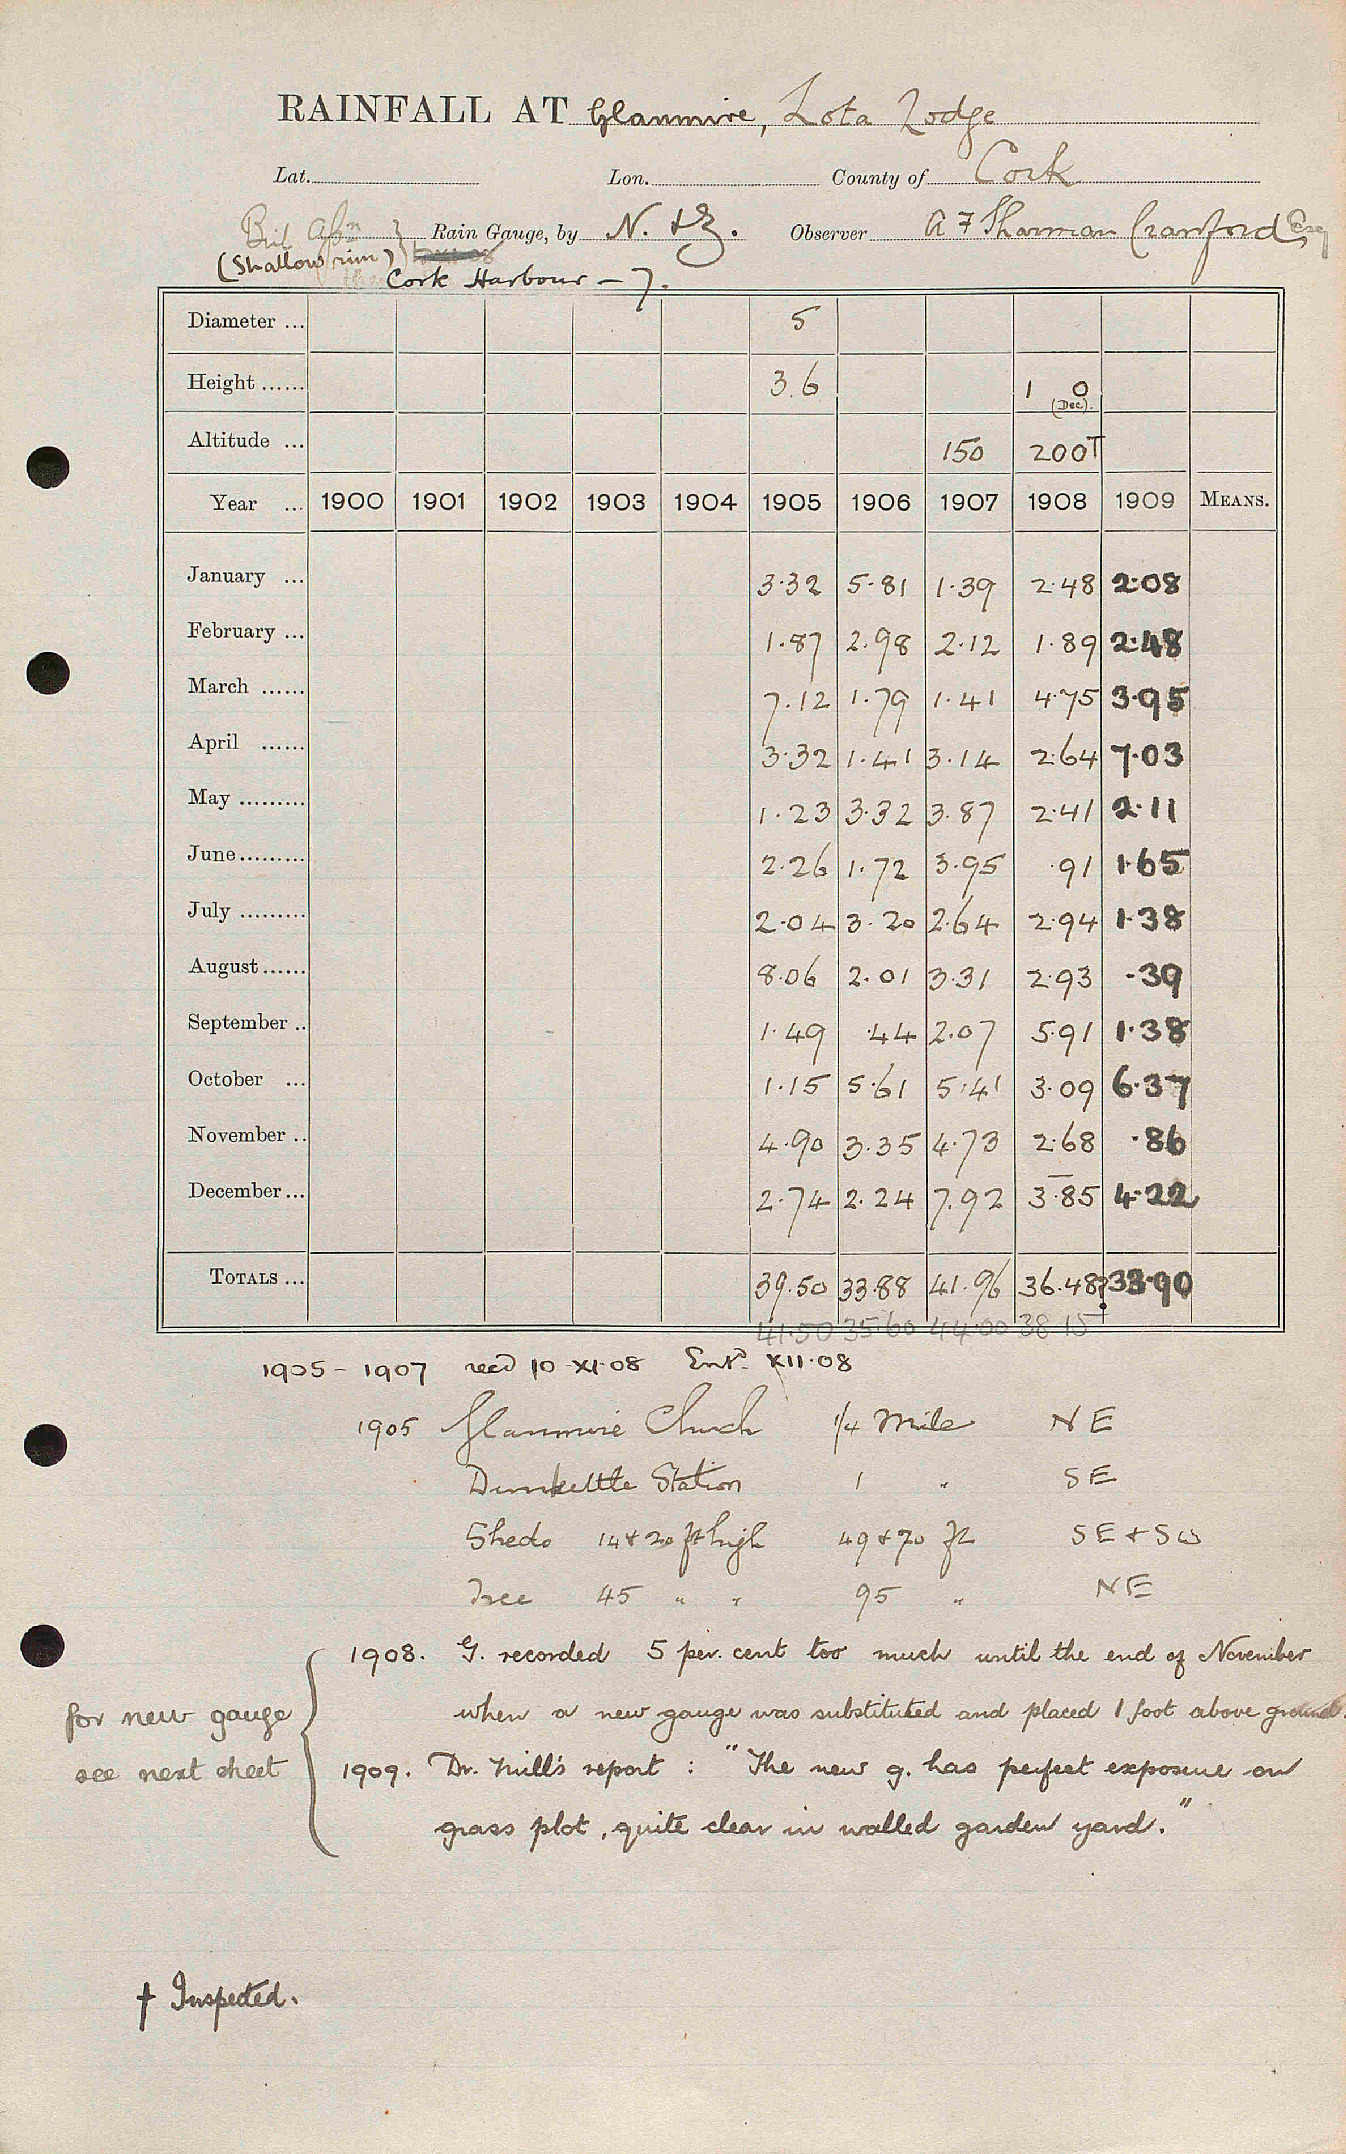 RAINFALL AT Glanmire, Lota Lodge
Lat. Lon. County of Cork
Brit Assn Rain Gauge, by N. & Z. Observer A F Sharman Crawford Esq
(Shallow rim)
Cork Harbour – 7.
Diameter ... 5
Height ...... 3.6 1 0
(Dec).
Altitude ... 150 200T
Year ... 1900 1901 1902 1903 1904 1905 1906 1907 1908 1909 MEANS.
January ... 3.32 5.81 1.39 2.48 2.08
February ... 1.87 2.98 2.12 1.89 2.48
March ...... 7.12 1.79 1.41 4.75 3.95
April ...... 3.32 1.41 3.14 2.64 7.03
May ......... 1.23 3.32 3.87 2.41 2.11
June......... 2.26 1.72 3.95 .91 1.65
July ......... 2.04 3.20 2.64 2.94 1.38
August...... 8.06 2.01 3.31 2.93 .39
September .. 1.49 .44 2.07 5.91 1.38
October ... 1.15 5.61 5.41 3.09 6.37
November .. 4.90 3.35 4.73 2.68 .86
December... 2.74 2.24 7.92 3.85 4.22
TOTALS ... 39.50 33.88 41.96 36.48? 33.90
41.50 35.60 44.00 38.15 †
1905 – 1907 recd 10.XI.08 Entd. XII.08
1905 Glanmire Church 1/4 Mile NE
Dunkettle Station 1 " SE
Sheds 14 & 20 ft high 49 & 70 ft SE & SW
Tree 45 " " 95 " NE
1908. G. recorded 5 per. cent too much until the end of November
when a new gauge was substituted and placed 1 foot above ground.
for new gauge
see next sheet
1909. Dr. Mill's report : "The new g. has perfect exposure on
grass plot, quite clear in walled garden yard."
† Inspected.